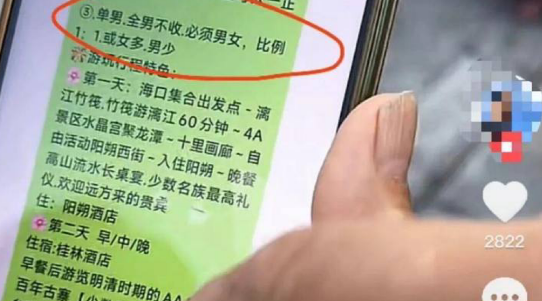 ③.单男.全男不收.必须男女，比例
1：1.或女多.男少
游玩行程特色：
第一天：海口集合出发点－漓
江竹筏.竹筏游漓江60分钟－4A
景区水晶宫聚龙潭－十里画廊－自
由活动阳朔西街－入住阳朔－晚餐
高山流水长桌宴.少数名族最高礼
仪.欢迎远方来的贵宾
住：阳朔酒店
第二天 早/中/晚
住宿:桂林酒店
早餐后游览明清时期的AA
百年古寨【少数
2822